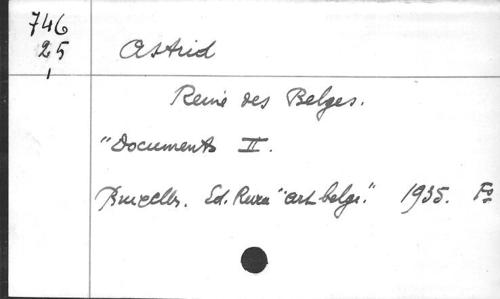 746
25
1
Astrid
Reine des Belges.
"Documents II.
Bruxelles. Ed. Revue "art belge." 1935. Fo